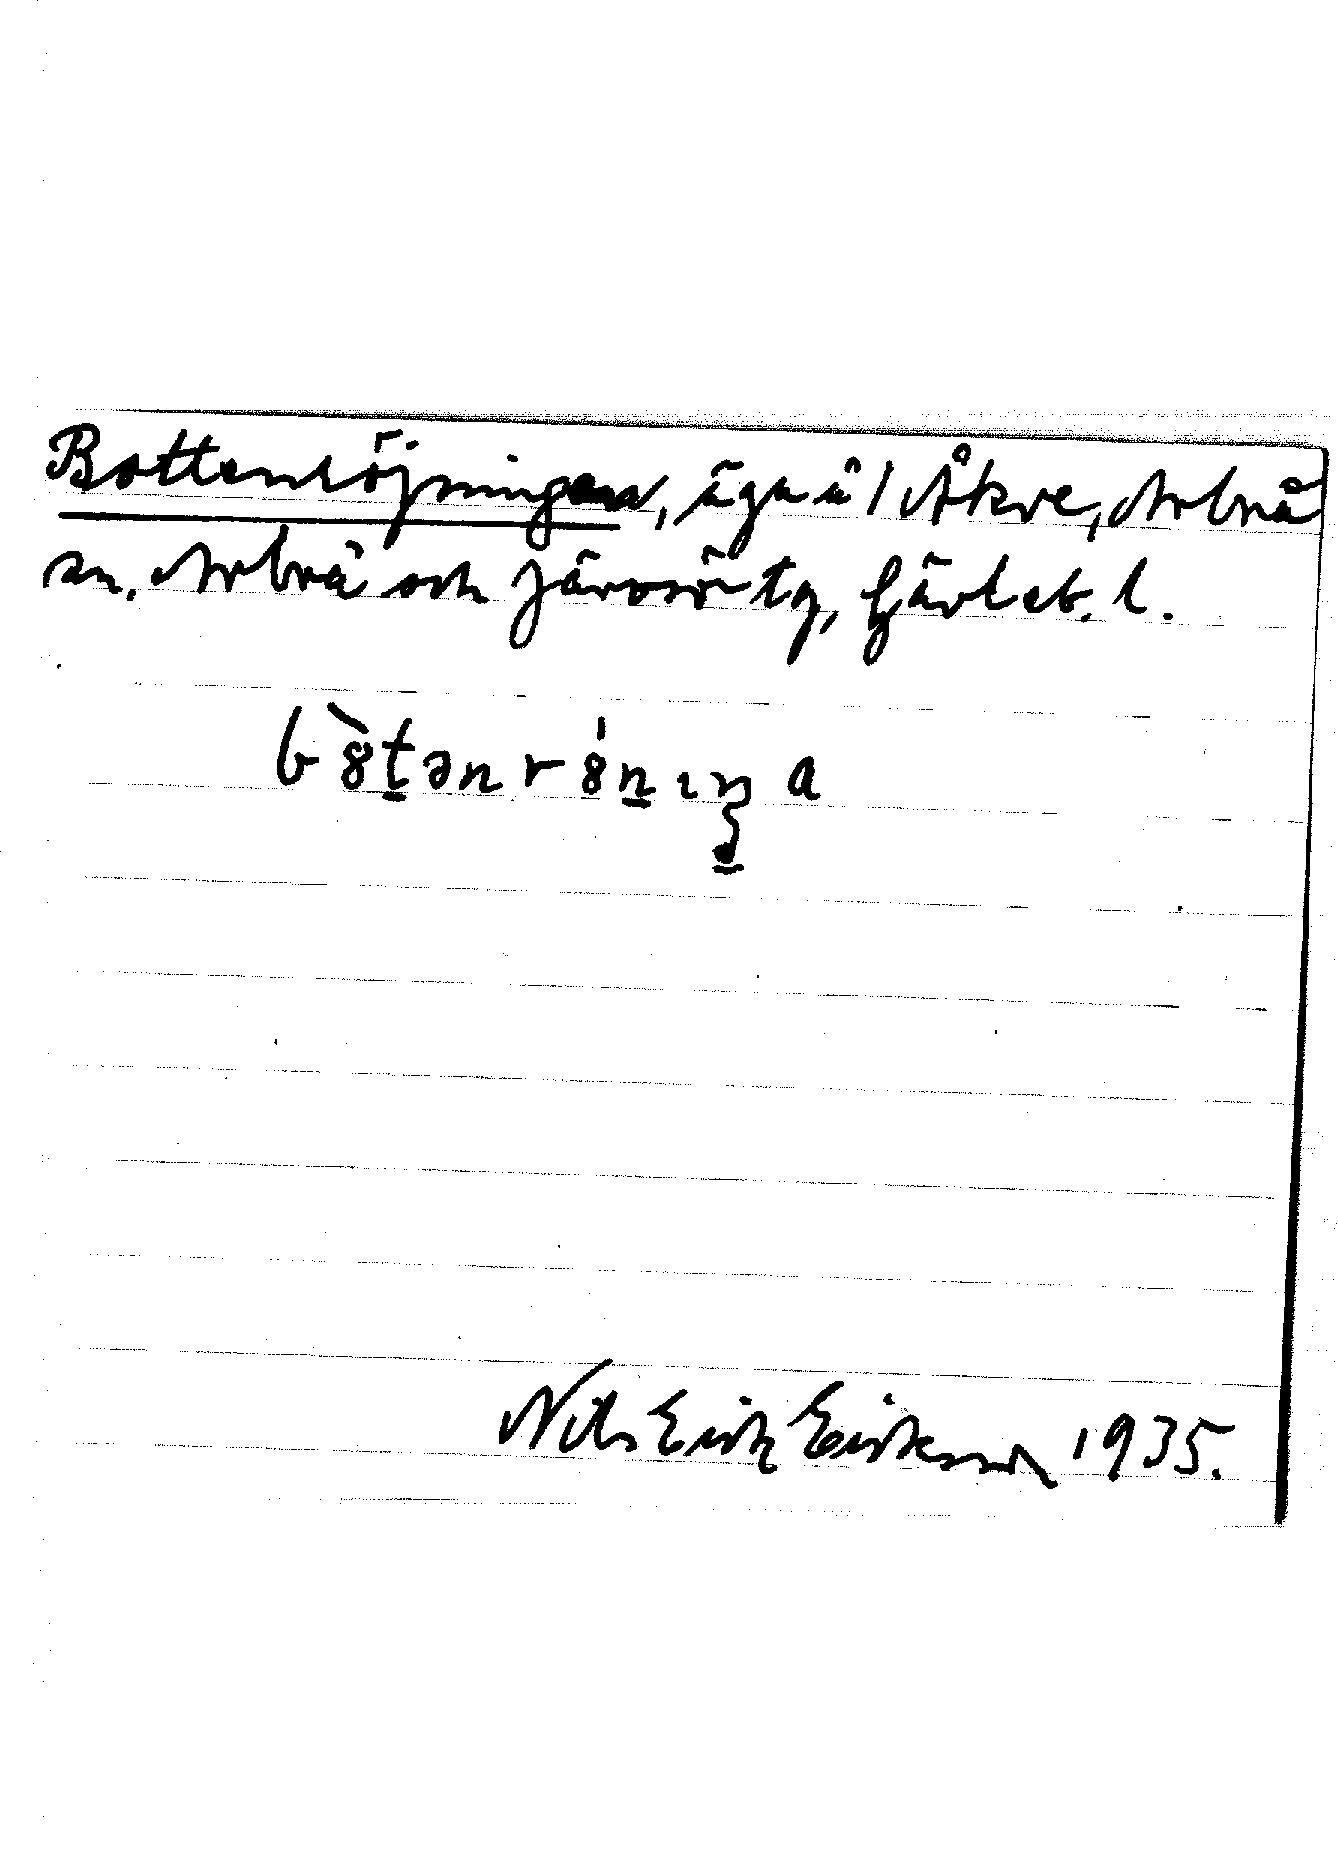 Bottenröjningen, äga å 1 Åkre, Arbrå
sn. Arbrå och Järvsö tg, Gävleb. l.
b8̀t̠ənr8́n̠ıŋ̠a
Nils Erik Eriksson 1935.